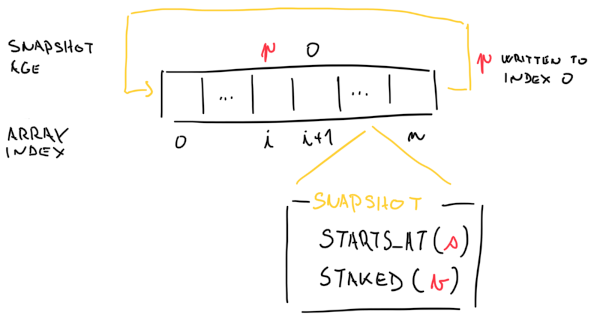 SNAPSHOT
AGE
p 0
p WRITTEN TO
INDEX 0
... ...
ARRAY
INDEX
0 i i+1 n
SNAPSHOT
STARTS_AT(s)
STAKED (v)